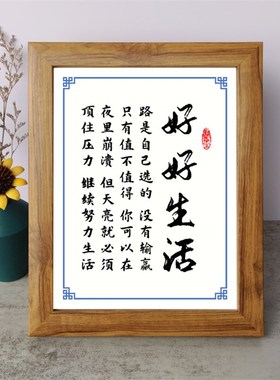 好好生活
路是自己选的 没有输赢
只有值不值得 你可以在
夜里崩溃 但天亮就必须
顶住压力 继续努力生活